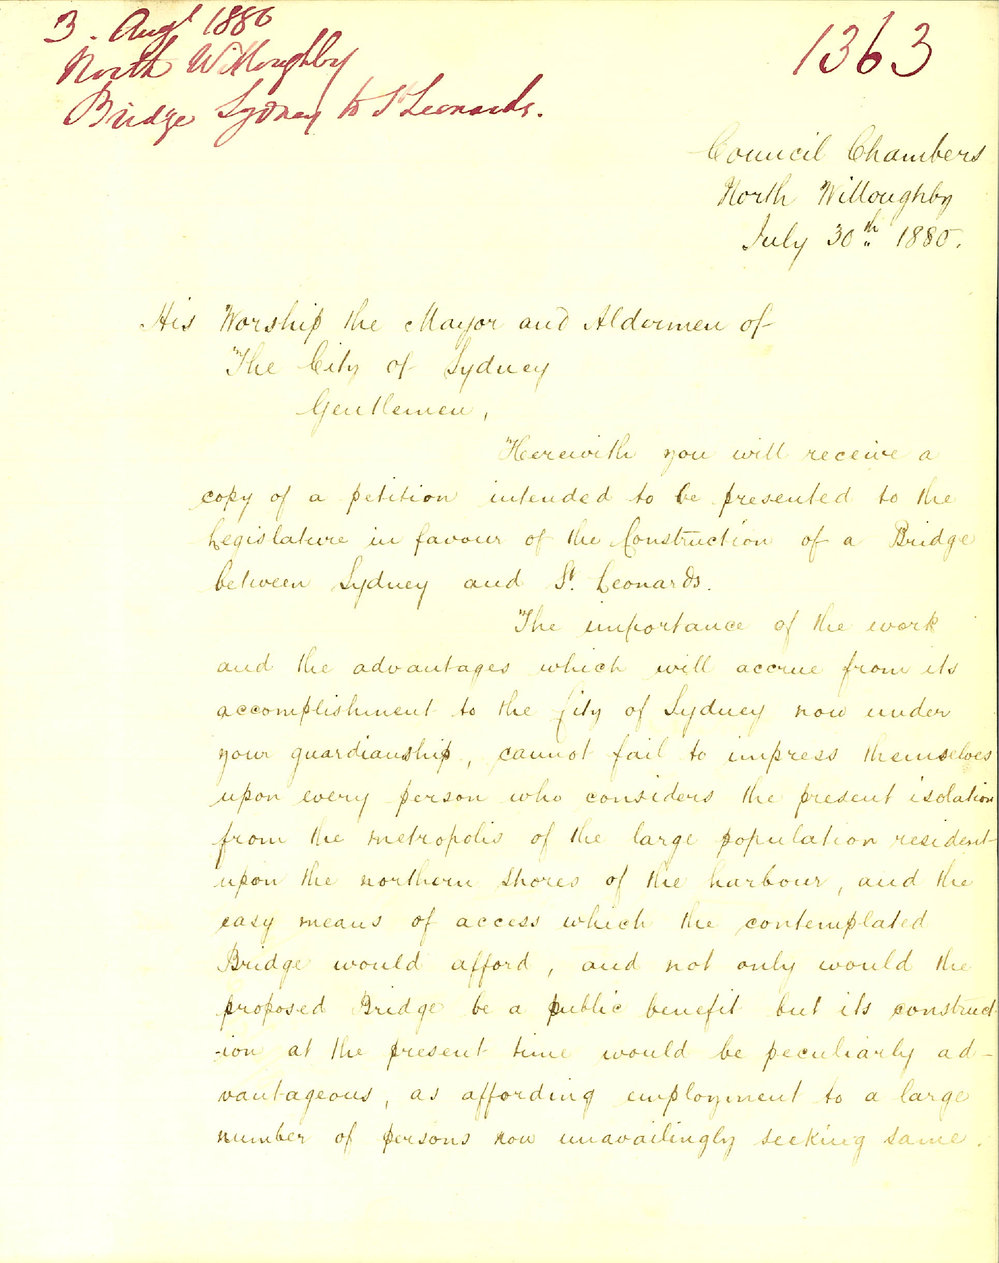 3. Augt 1880
1363
North Willoughby
Bridge Sydney to St Leonards.
Council Chambers
North Willoughby
July 30th 1880.
His Worship the Mayor and Aldermen of
The City of Sydney
Gentlemen,
Herewith you will receive a
copy of a petition intended to be presented to the
Legislature in favour of the Construction of a Bridge
between Sydney and St. Leonards.
The importance of the work
and the advantages which will accrue from its
accomplishment to the City of Sydney now under
your guardianship, cannot fail to impress themselves
upon every person who considers the present isolation
from the metropolis of the large population resident
upon the northern shores of the harbour, and the
easy means of access which the contemplated
Bridge would afford, and not only would the
proposed Bridge be a public benefit but its construct-
-ion at the present time would be peculiarly ad-
vantageous, as affording employment to a large
number of persons now unavailingly seeking same.